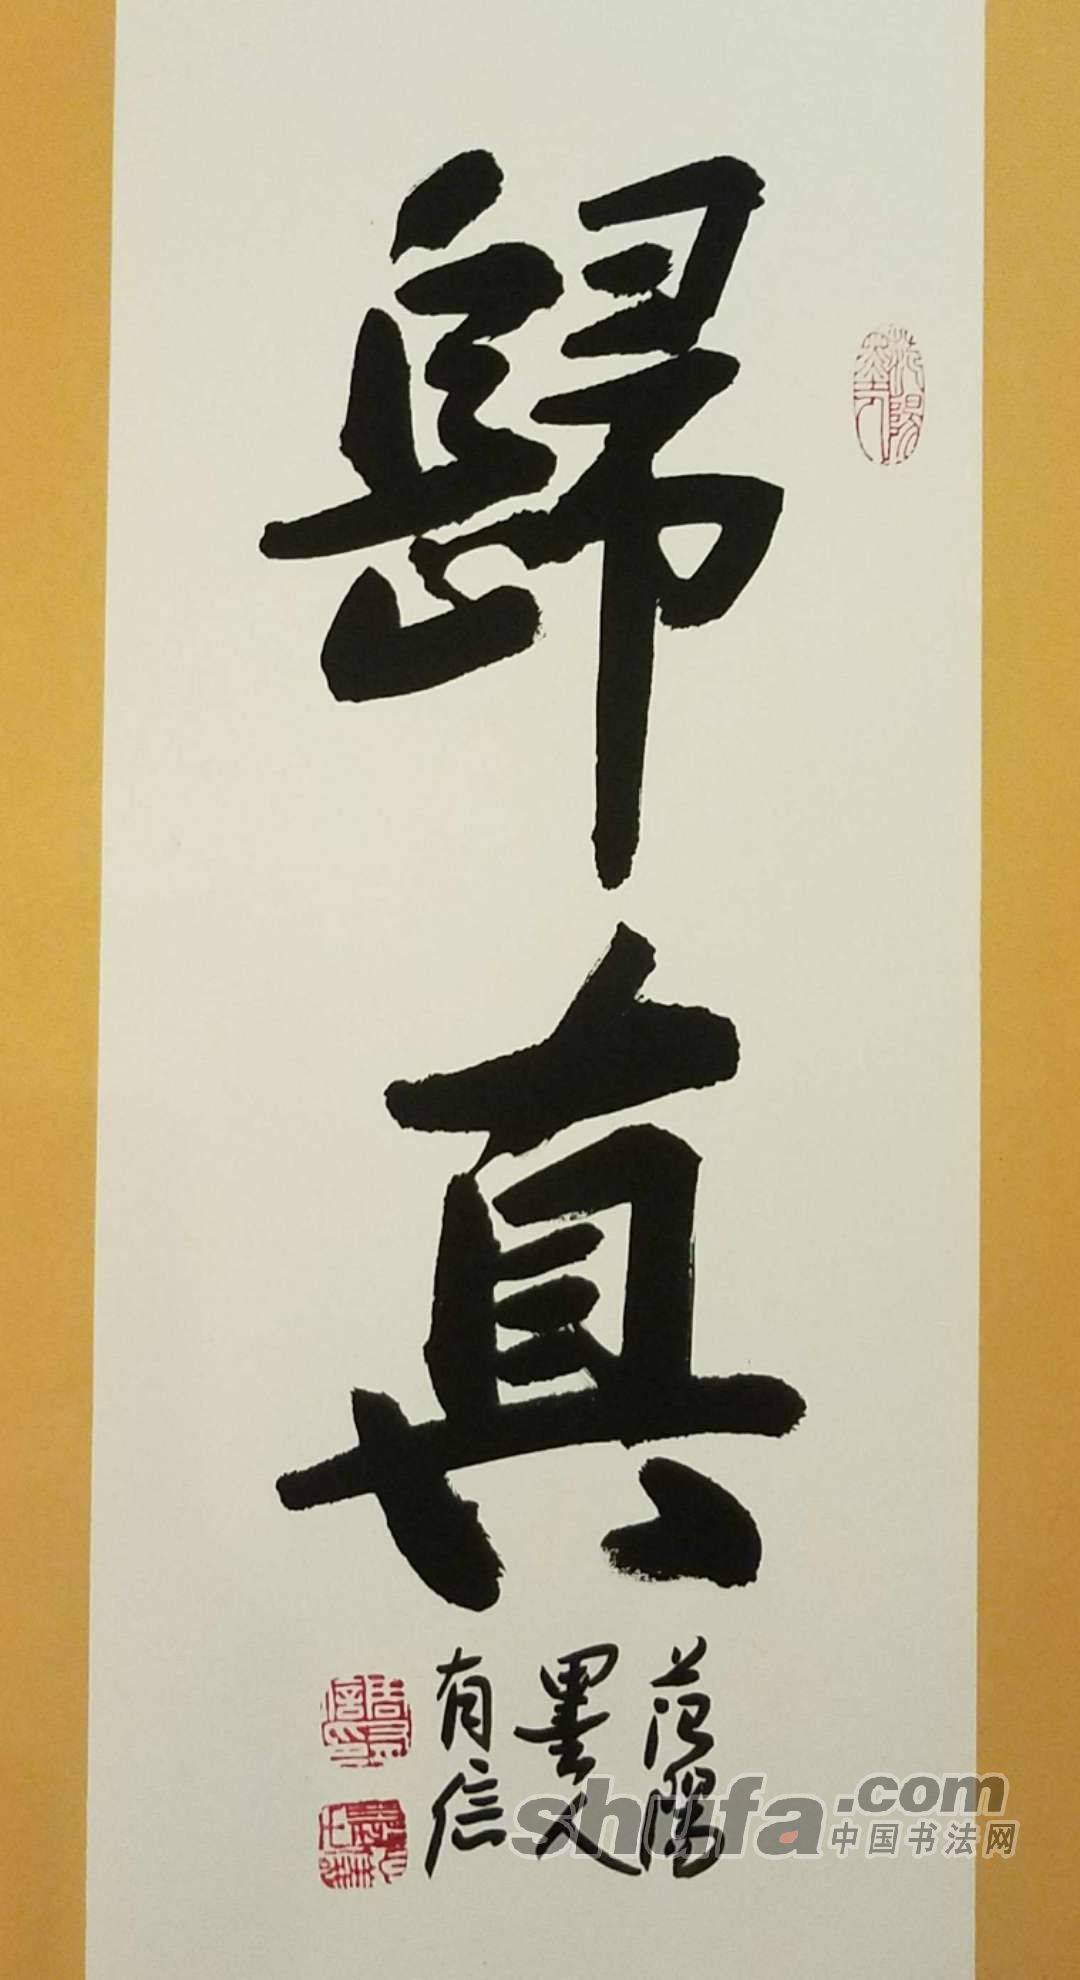 歸
真
范陽
墨人
有信
范陽
墨人
shufa.com
中国书法网